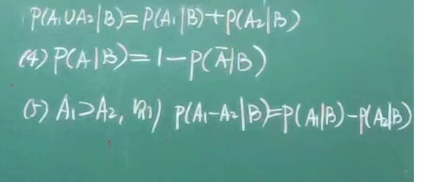 P(A₁∪A₂|B)=P(A₁|B)+P(A₂|B)
(4) P(A|B)=1-P(Ā|B)
(5) A₁⊃A₂, 则 P(A₁-A₂|B)=P(A₁|B)-P(A₂|B)